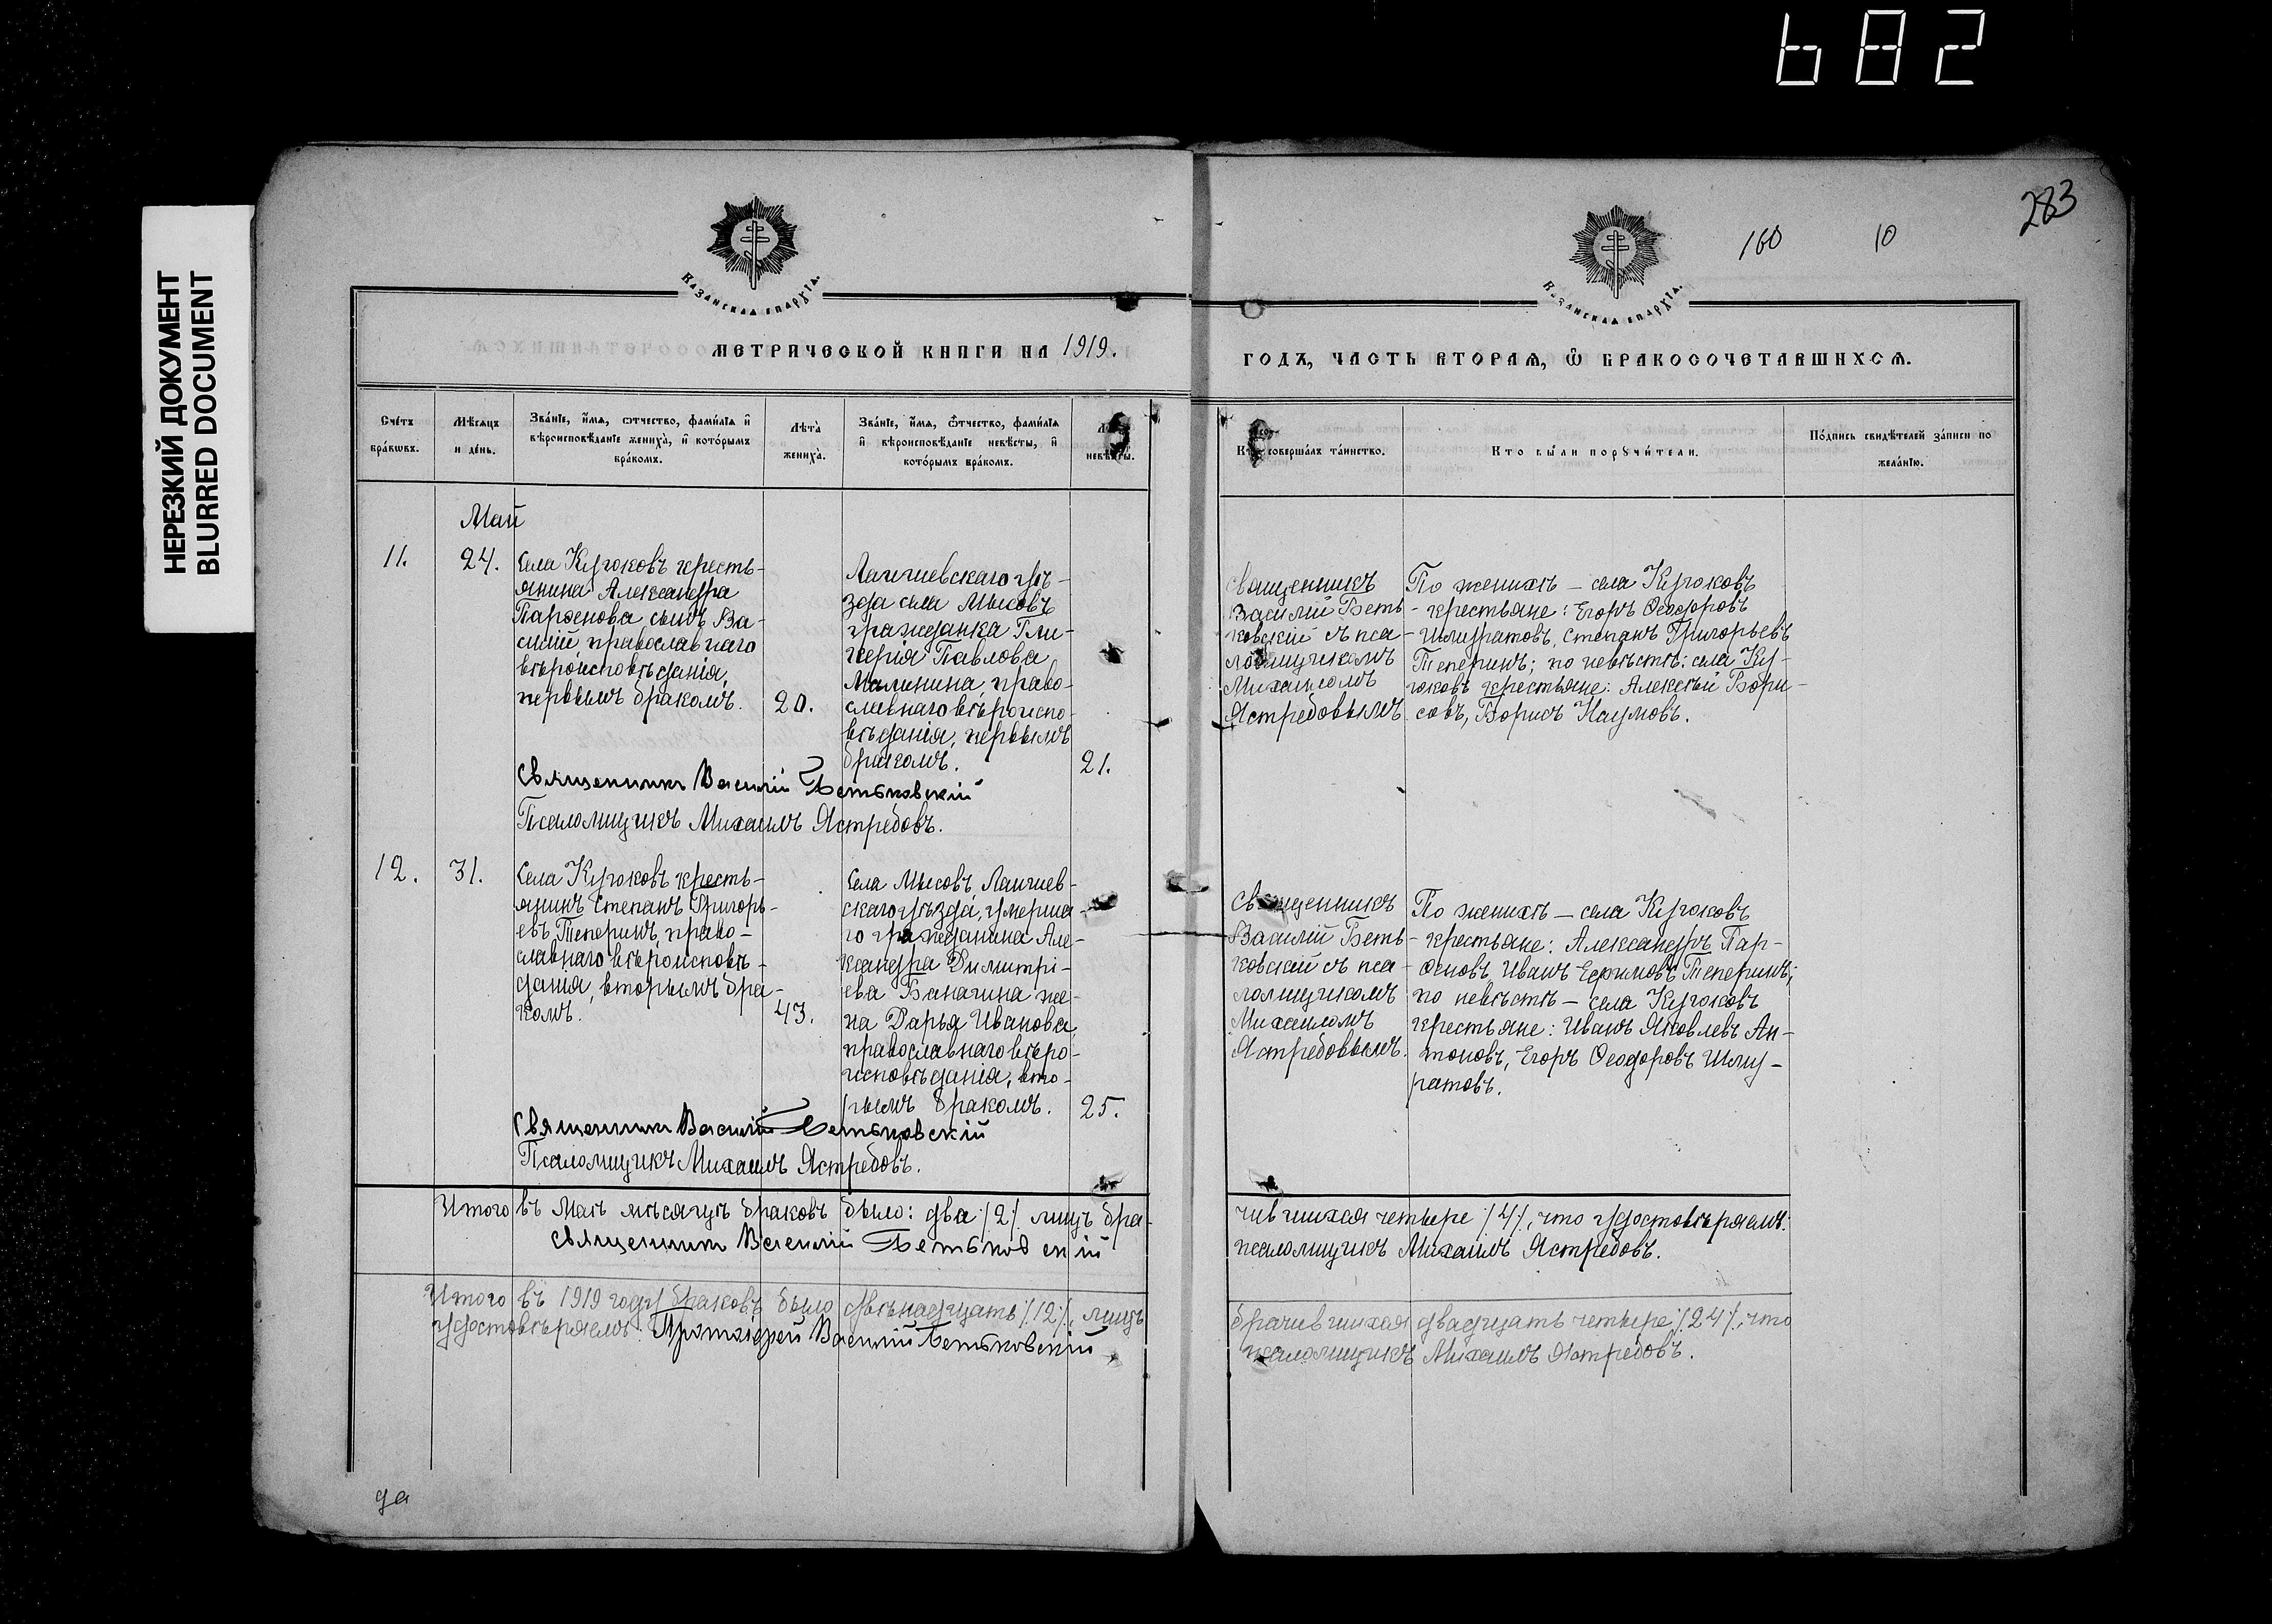 682
НЕРЕЗКИЙ ДОКУМЕНТ
BLURRED DOCUMENT
283
160 10
КАЗАНСКАЯ ЕПАРХІЯ.
КАЗАНСКАЯ ЕПАРХІЯ.
МЕТРИЧЕСКОЙ КНИГИ НА 1919.
ГОДЪ, ЧАСТЬ ВТОРАЯ, Ѿ БРАКОСОЧЕТАВШИХСЯ.
Счетъ браковъ.
Мѣсяцъ и день.
Званіе, имя, отчество, фамилія и
вѣроисповѣданіе жениха, и которымъ
бракомъ.
Лѣта
жениха.
Званіе, имя, отчество, фамилія
и вѣроисповѣданіе невѣсты, и
которымъ бракомъ.
невѣсты.
совершалъ таинство.
Кто были поручители.
Подпись свидѣтелей записи по
желанію.
Май
11. 24.
Села Куюковъ кресть-
янина Александра
Парѳенова, сынъ Ва-
силій, православнаго
вѣроисповѣданія,
первымъ бракомъ.
20.
Лаишевскаго уѣ-
зда села Мысовъ
гражданка Гли-
керія Павлова
Малинина, право-
славнаго вѣроиспо-
вѣданія, первымъ
бракомъ.
21.
Священникъ
Василій Беть-
ковскій съ пса-
ломщикомъ
Михаиломъ
Ястребовымъ.
По женихѣ — села Куюковъ
крестьяне: Егоръ Ѳеодоровъ
Шмуратовъ, Степанъ Григорьевъ
Теперинъ; по невѣстѣ: села Ку-
юковъ крестьяне: Алексѣй Бори-
совъ, Борисъ Наумовъ.
Священникъ Василій Бетьковскій
Псаломщикъ Михаилъ Ястребовъ.
12. 31.
Села Куюковъ кресть-
янинъ Степанъ Григорь-
евъ Теперинъ, право-
славнаго вѣроисповѣ-
данія, вторымъ бра-
комъ.
43.
Села Мысовъ, Лаишев-
скаго уѣзда, умерша-
го гражданина Але-
ксандра Димитрі-
ева Баначина же-
на Дарья Иванова,
православнаго вѣро-
исповѣданія, вто-
рымъ бракомъ.
25.
Священникъ
Василій Беть-
ковскій съ пса-
ломщикомъ
Михаиломъ
Ястребовымъ.
По женихѣ — села Куюковъ
крестьяне: Александръ Пар-
ѳеновъ, Иванъ Ефимовъ Теперинъ;
по невѣстѣ — села Куюковъ
крестьяне: Иванъ Яковлевъ Ан-
тоновъ, Егоръ Ѳеодоровъ Шму-
ратовъ.
Священникъ Василій Бетьковскій
Псаломщикъ Михаилъ Ястребовъ.
Итого въ Маѣ мѣсяцѣ браковъ было: два /2/, лицъ бра-
чившихся четыре /4/, что удостовѣряемъ:
Священникъ Василій Бетьковскій
псаломщикъ Михаилъ Ястребовъ.
Итого въ 1919 году браковъ было двѣнадцать /12/, лицъ
брачившихся двадцать четыре /24/, что
удостовѣряемъ: Протоіерей Василій Бетьковскій
псаломщикъ Михаилъ Ястребовъ.
да